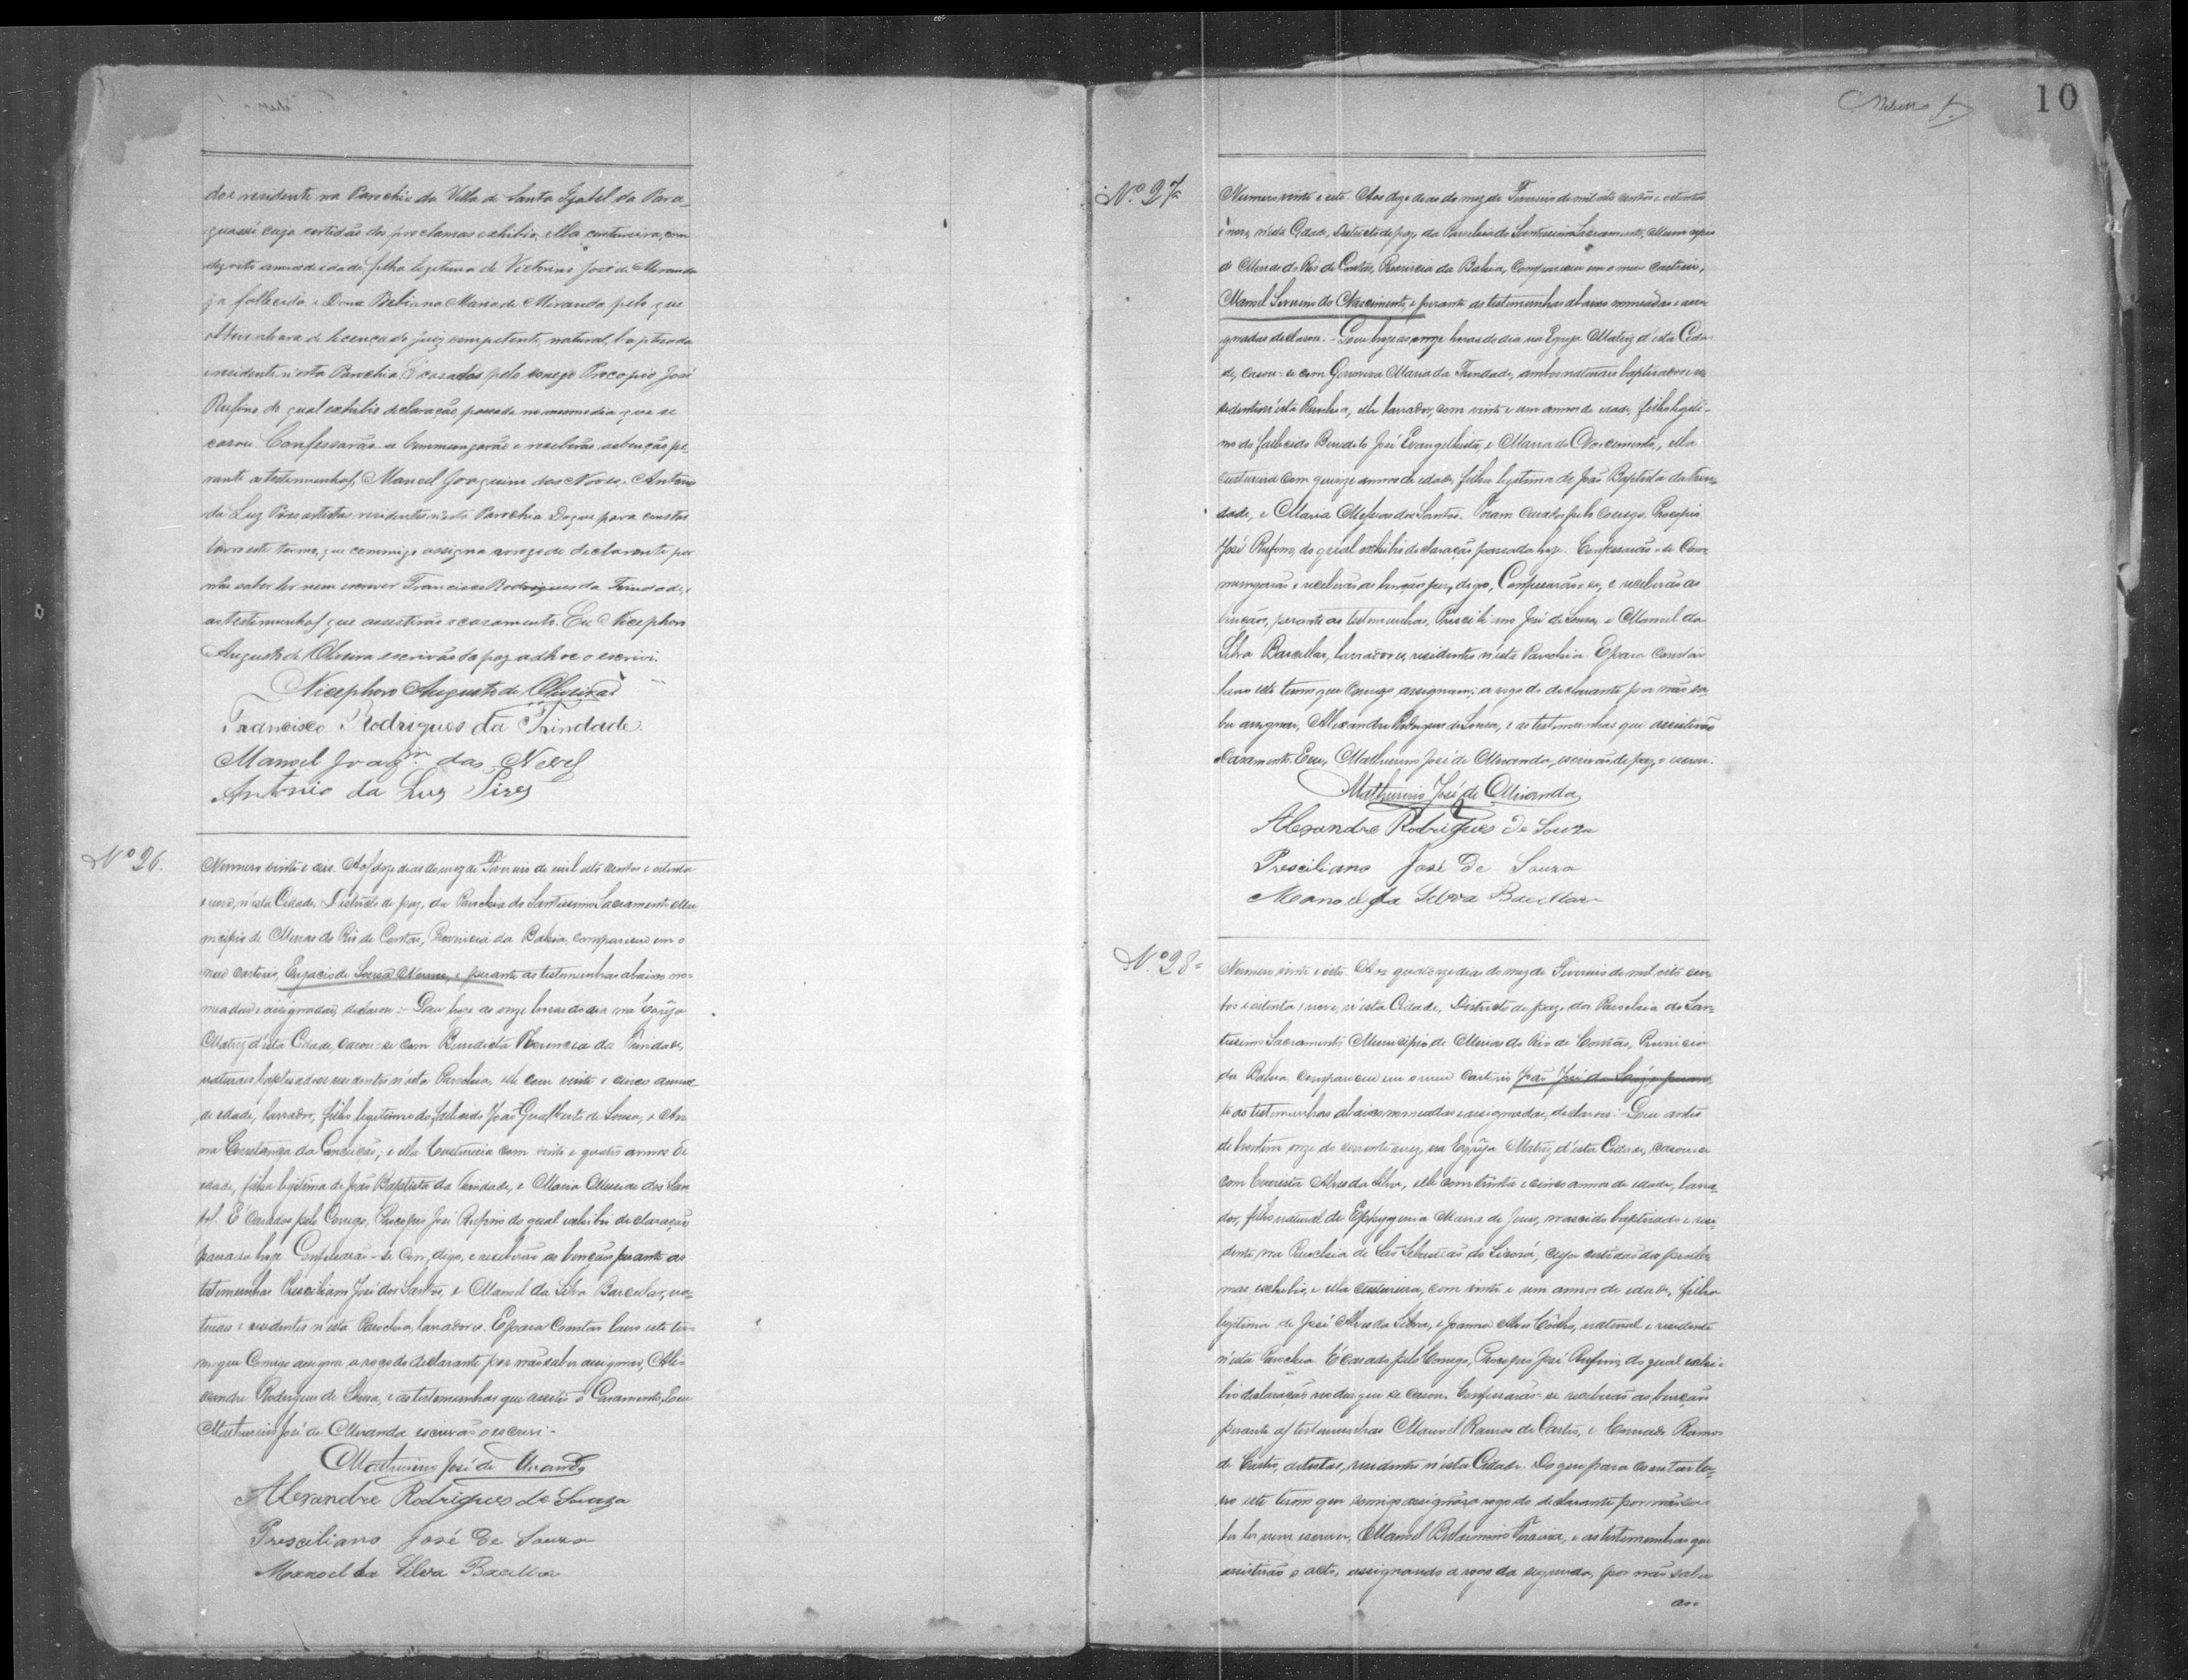 dor residente na Parochia da Villa de Santa Izabel do Para-
guassú cuja certidão dos proclamas exhibio, ella costureira, com
dezoito annos de idade, filha legitima de Victorino José de Miranda
ja fallecido e Dona Bibiana Maria de Miranda pelo que
obteve alvara de licença do juiz competente, natural, baptisada
e residente n'esta Parochia. É casados pelo conego Procopio José
Rufino, do qual exhibio declaração, passada no mesmo dia que se
casou. Confessarão-se Commungarão e receberão as bençãos pe-
rante as testimunhas, Manoel Joaquim das Neves, Antonio
da Luz Pires artistas, residentes n'esta Parochia. Do que para constar
lavro este termo, que commigo assigna a rogo do declarante por
não saber ler nem escrever Francisco Rodrigues da Trindade, e
as testimunhas que assestirão o casamento. Eu Nicephoro
Augusto de Oliveira escrivão da paz ad hoc o escrivi.
Nicephoro Augusto de Oliveira
Francisco Rodrigues da Trindade.
Manoel Joaqm. das Neves
Antonio da Luz Pires
Nº 26.
Numero vinte e seis. Aos doze dias do mez de Fevereiro de mil oito centos e oitenta
e nove, n'esta Cidade, Districto de paz, da Parochia do Santissimo Sacramento Mu-
nicipio de Minas do Rio de Contas, Provincia da Bahia, compareceu em o
meu cartorio, de Souza e perante as testimunhas abaixo no-
meadas e assignadas, declarou:- Que hoje as onze horas do dia na Egreja
Matriz d'esta Cidade, casou-se com Benedicta da Trindade,
naturaes baptisados e residentes n'esta Parochia, elle com vinte e cinco annos
de idade, lavrador, filho legitimo do fallecido João Gualberto de Souza, e
Constança da Conceição, e ella Costureira com vinte e quatro annos de
idade, filha legitima de João Baptista da Trindade, e Maria Messias dos San-
tos. É casados pelo Conego, Procopio José Rufino do qual exhibio declaração
passada hoje. Confessarão-se Com, digo, e receberão as bençãos perante as
testemunhas Presciliano José dos Santos, e Manoel da Silva Barcellar, na-
turaes e residentes n'esta Parochia, lavradores. E para constar lavro este ter-
mo que Comigo assigna a rogo do declarante por não saber assignar, Ale-
xandre Rodrigues de Souza, e as testemunhas que assistio o Casamento. Eu
Mathurino José de Miranda escrivão o escrevi.
Mathurino José de Miranda
Alexandre Rodrigues de Souza
Presciliano José de Souza
Manoel da Silva Bacellar
10
Nº 27
Numero vinte e sete. Aos doze dias do mez de Fevereiro de mil oito centos e oitenta
e nove, n'esta Cidade, Districto de paz, da Parochia do Santissimo Sacramento, Municipio
de Minas do Rio de Contas, Provincia da Bahia, Compareceu em o meu Cartorio,
Manoel Severino do Nascimento, e perante as testemunhas abaixo nomeadas e assi-
gnadas declarou.- Que hoje as onze horas do dia na Egreja Matriz d'esta Cida-
de, casou-se com Genoveva Maria da Trindade, ambos naturaes baptisados e re-
sidentes n'esta Parochia, elle lavrador, com vinte e um annos de idade, filho legiti-
mo do fallecido Benedito José Evangelista, e Maria do Nascimento, ella
custureira com quinze annos de idade, filha legitima de João Baptista da Trin-
dade, e Maria Messias dos Santos. Foram Casados pelo Conego, Procopio
José Rufino, do qual exhibio declaração passada hoje. Confessarão-se Com-
mungarão e receberão as bençãos per, digo, Confessarão-se, e receberão as
bençãos, perante as testemunhas, Presciliano José de Souza, e Manoel da
Silva Barcellar, lavradores, residentes n'esta Parochia. E para constar
lavro este termo que Comigo assignam; a rogo do declarante por não sa-
ber assignar, Alexandre Rodrigues de Souza, e as testemunhas que assistirão
o Casamento. Eu, Mathurino José de Miranda, escrivão de paz, o escrevi.
Mathurino José de Miranda
Alexandre Rodrigues de Souza
Presciliano José de Souza
Manoel da Silva Bacellar
Nº 28
Numero vinte e oito. Aos quatorze dias do mez de Fevereiro de mil oito cen-
tos e oitenta e nove, n'esta Cidade, Districto de paz, da Parochia do San-
tissimo Sacramento Municipio de Minas do Rio de Contas, Provincia
da Bahia, compareceu em o meu Cartorio João José da Luz, e peran-
te as testemunhas abaixo nomeadas e assignadas, declarou:- Que antes
de hontem onze do corrente mez, na Egreja Matriz d'esta Cidade, casou-se
com Alves da Silva, elle com trinta e cinco annos de idade, lavra-
dor, filho natural de Ephygenia Maria de Jesus, nascido baptisado e resi-
dente, na Parochia de São Sebastião do Sincorá, cuja certidão dos procla-
mas exhibio, e ella custureira, com vinte e um annos de idade, filha
legitima de José Alves da Silva, e Joanna Alves Coelho, natural e residente
n'esta Parochia. É casado pelo Conego, Procopio José Rufino, do qual exhi-
bio declaração no dia que se casou. Confessarão-se receberão as bençãos
perante as testemunhas Manoel Ramos de Castro, e Ramos
de Castro, artistas, residentes n'esta Cidade. Do que para constar la-
vro este termo que comigo assignão a rogo do declarante por não sa-
ber ler nem escrever, Manoel e as testemunhas que
assistirão o acto, assignando a rogo da segunda, por não saber
as-